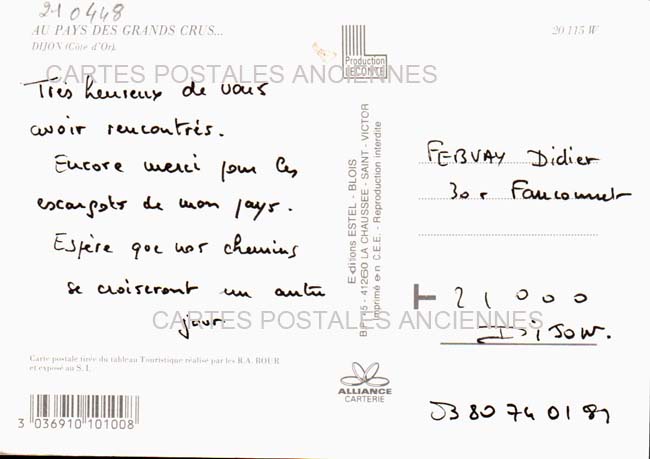 210448
AU PAYS DES GRANDS CRUS...
DIJON (Côte d'Or).
20 115 W
Production
LECONTE
CARTES POSTALES ANCIENNES
Très heureux de vous
avoir rencontrés.
Encore merci pour les
escargots de mon pays.
Espère que nos chemins
se croiseront un autre
jour
Editions ESTEL - BLOIS
B.P. 45 - 41260 LA CHAUSSEE - SAINT - VICTOR
Imprimé en C.E.E. - Reproduction interdite
FEBVAY Didier
30 r Fauconnet
21000
DIJON.
CARTES POSTALES ANCIENNES
Carte postale tirée du tableau Touristique réalisé par les B.A. BOUR
et exposé au S. I.
ALLIANCE
CARTERIE
3 036910 101008
03 80 74 01 81